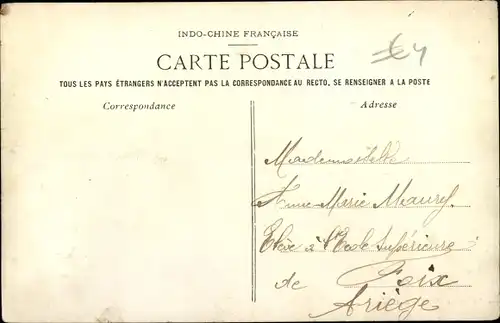 INDO-CHINE FRANÇAISE
CARTE POSTALE
TOUS LES PAYS ÉTRANGERS N'ACCEPTENT PAS LA CORRESPONDANCE AU RECTO, SE RENSEIGNER A LA POSTE
Correspondance
Adresse
Mademoiselle
Anne-Marie Maurel
Elève à l'Ecole Supérieure
de Foix
Ariège